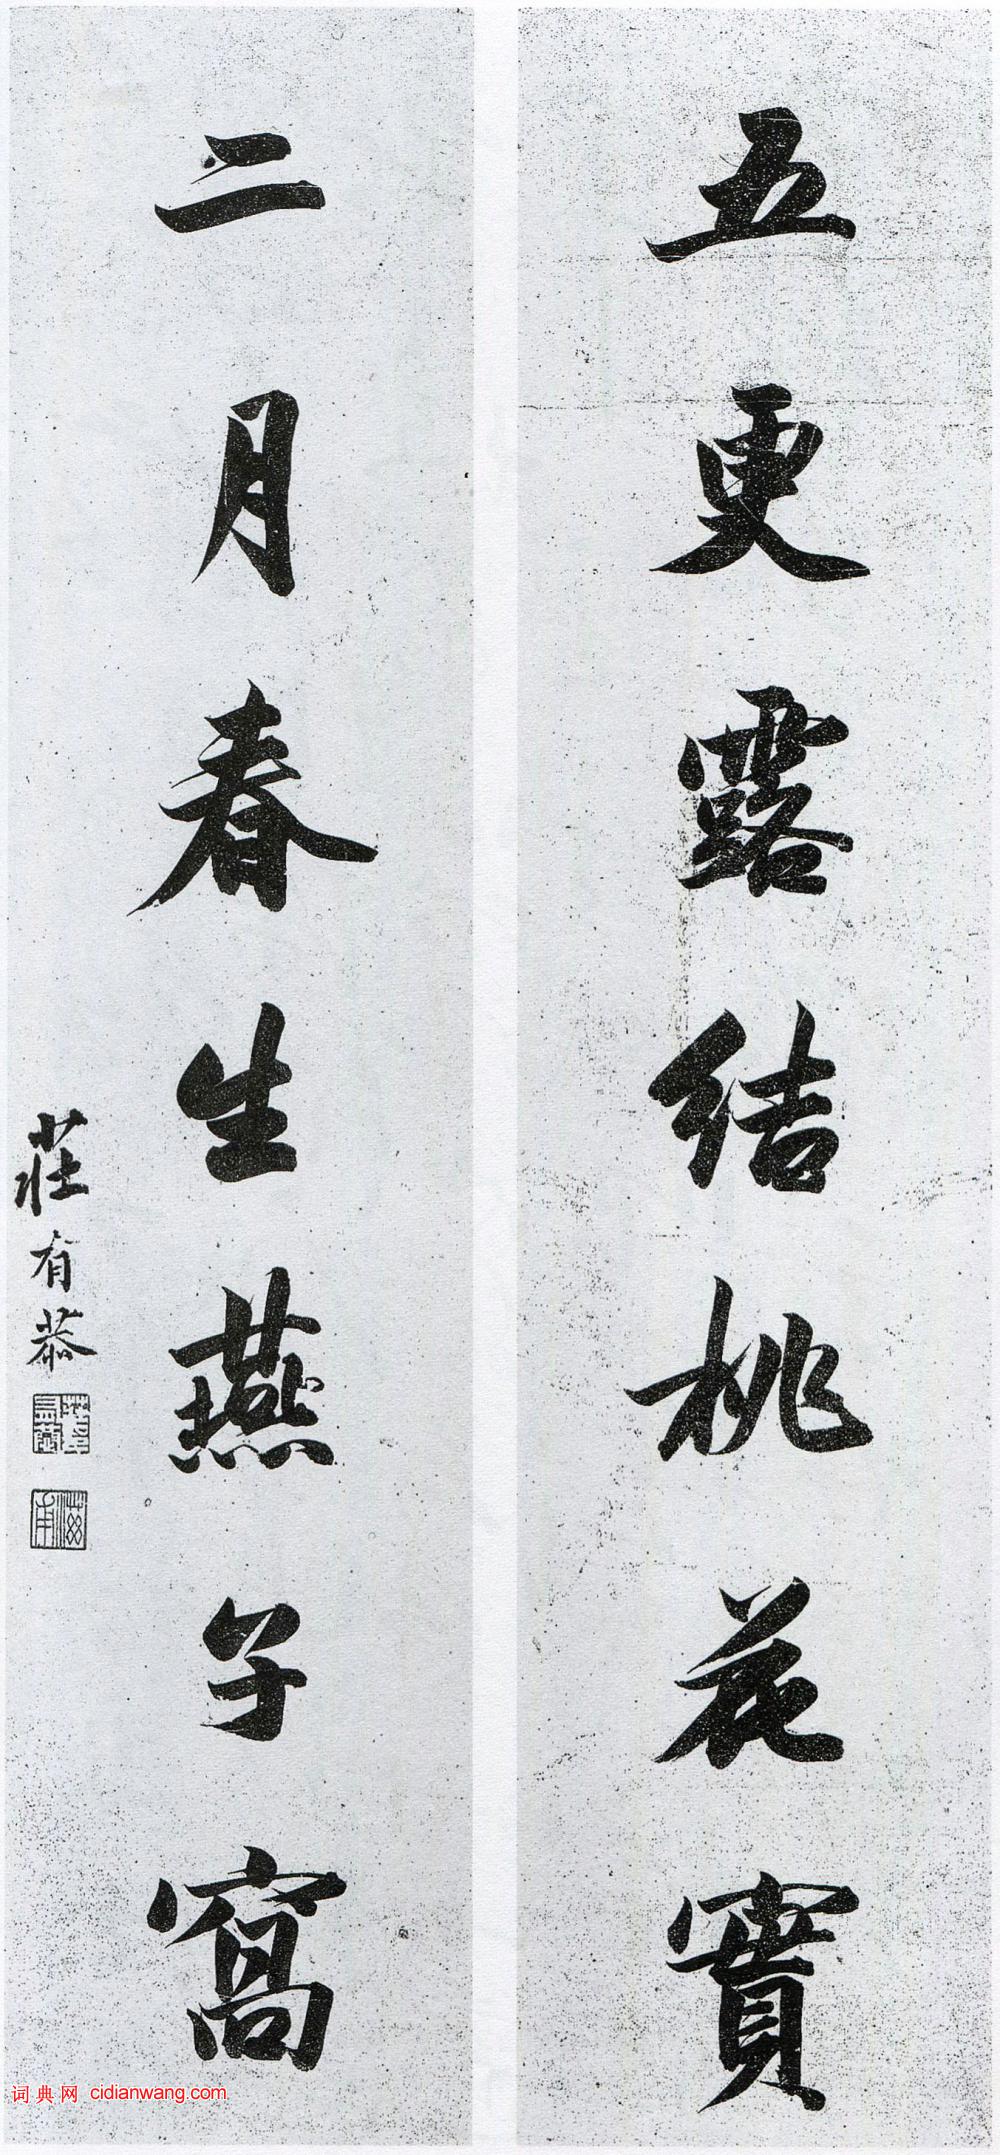 五更露结桃花實
二月春生燕子窩
莊有恭
词典网 cidianwang.com